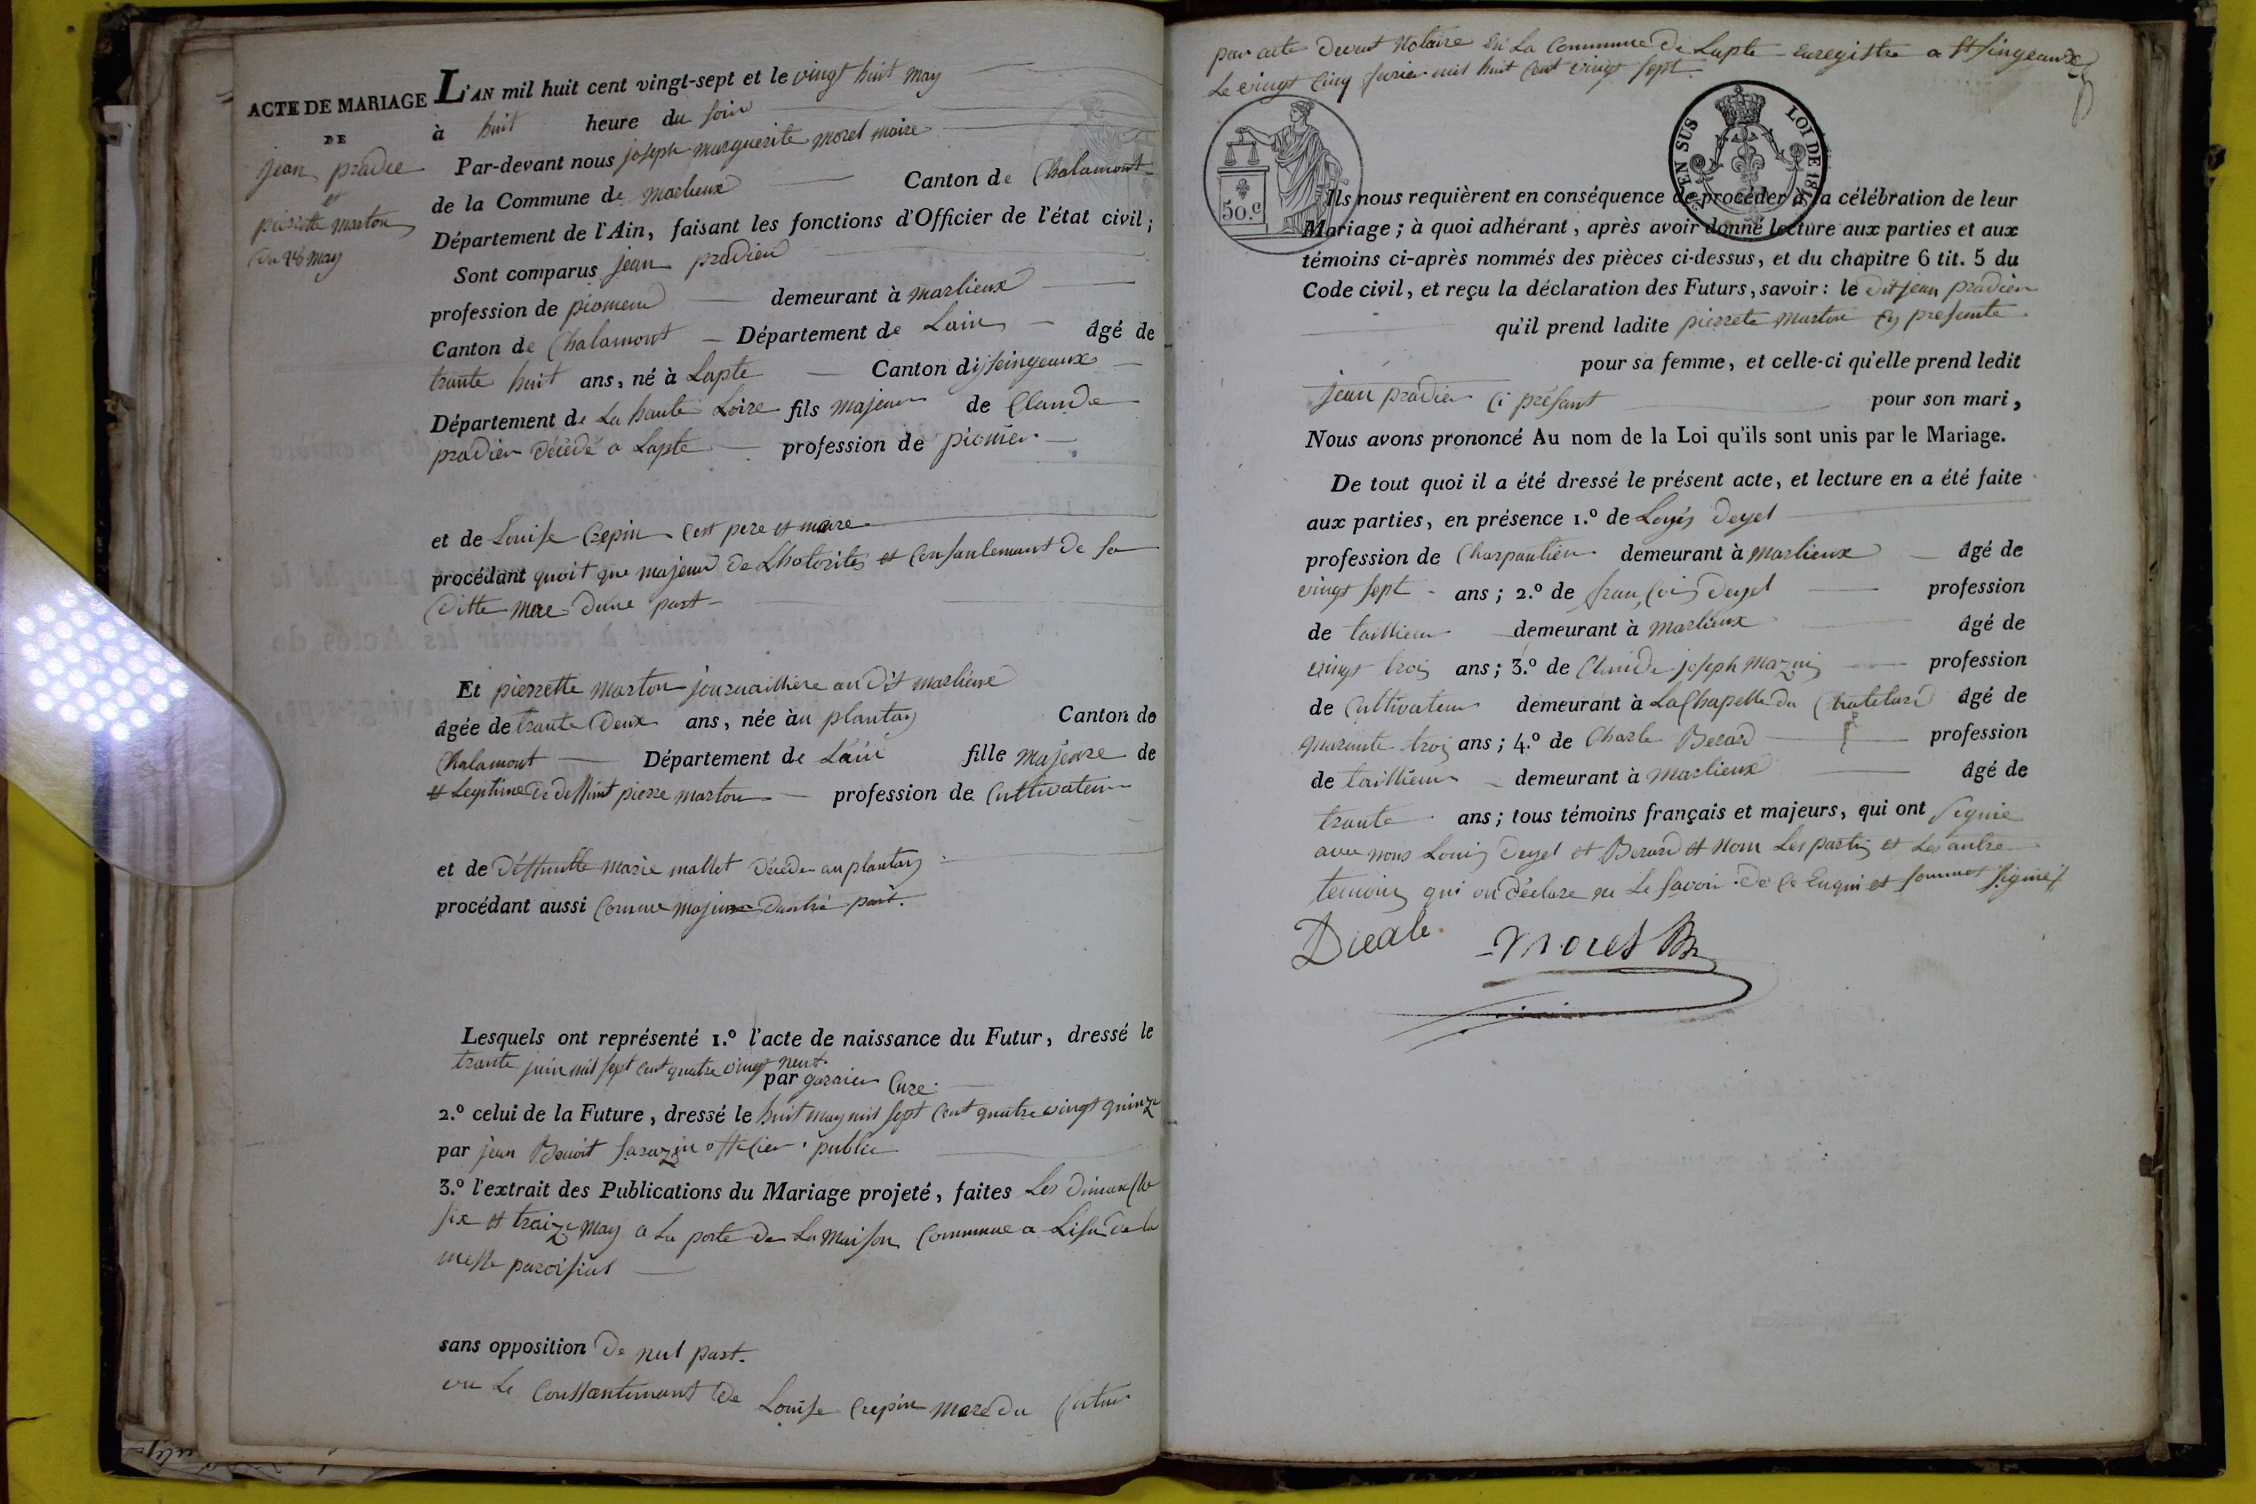 ACTE DE MARIAGE
DE
jean pradie
et
pierrette marton
du 28 may
L'AN mil huit cent vingt-sept et le vingt huit may
à huit heure du soir
Par-devant nous joseph marguerite morel maire
de la Commune de marlieux Canton de Chalamont
Département de l'Ain, faisant les fonctions d'Officier de l'état civil;
Sont comparus jean pradier
profession de pionieu demeurant à marlieux
Canton de Chalamont Département de Lain âgé de
trante huit ans, né à Lapte Canton disseingeaux
Département de La haute Loire fils majeur de Claude
pradier décédé a Lapte profession de pionier
et de Louise Crepin cest pere et mere
procédant quoit que majeur de Lhotorités et consantemant de sa
ditte mere dune part
Et pierrette marton journailliere au dit marlieux
âgée de trante deux ans, née àu plantay Canton de
Chalamont Département de Lain fille majeure de
et Legitime de deffunt pierre marton profession de Cultivateur
et de deffunte marie mallet décédée au plantay
procédant aussi comme majeure dautre part.
Lesquels ont représenté 1.º l'acte de naissance du Futur, dressé le
trante juin mil sept cent quatre vingt neuf
par garnier Curé
2.º celui de la Future, dressé le huit may mil sept cent quatre vingt quinze
par jean Benoit sarazin officier public
3.º l'extrait des Publications du Mariage projeté, faites Les dimanche
six et traize may a La porte de La maison Commune a Lisu de la
messe paroisial
sans opposition de nul part.
vu Le Consantemant de Louise Crepin mere du futur
par acte devant Notaire en La Commune de Lapte enregistre a St singeaux
Le vingt cinq fevrier mil huit cent vingt sept
50.c
EN SUS LOI DE
Ils nous requièrent en conséquence de procéder à la célébration de leur
Mariage; à quoi adhérant, après avoir donné lecture aux parties et aux
témoins ci-après nommés des pièces ci-dessus, et du chapitre 6 tit. 5 du
Code civil, et reçu la déclaration des Futurs, savoir: le dit jean pradier
qu'il prend ladite pierrete marton cy presente
pour sa femme, et celle-ci qu'elle prend ledit
jean pradier ci présant pour son mari,
Nous avons prononcé Au nom de la Loi qu'ils sont unis par le Mariage.
De tout quoi il a été dressé le présent acte, et lecture en a été faite
aux parties, en présence 1.º de Louis deyel
profession de Charpantier demeurant à marlieux âgé de
vingt sept ans; 2.º de francois deyel profession
de taillieur demeurant à marlieux âgé de
vingt trois ans; 3.º de Claude joseph profession
de Cultivateur demeurant à La Chapelle du Chatelard âgé de
quarante trois ans; 4.º de Charle Berard profession
de taillieur demeurant à marlieux âgé de
trante ans; tous témoins français et majeurs, qui ont signié
avec nous Louis deyel et Berard et nom Les partis et Les autre
temoins qui on déclare ne Le savoir de ce enquis et sommes signiés
morel